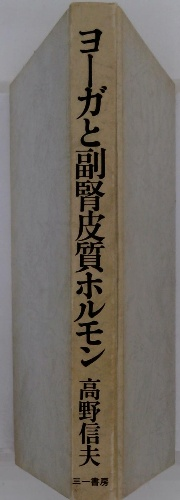 ヨーガと副腎皮質ホルモン
高野信夫
三一書房